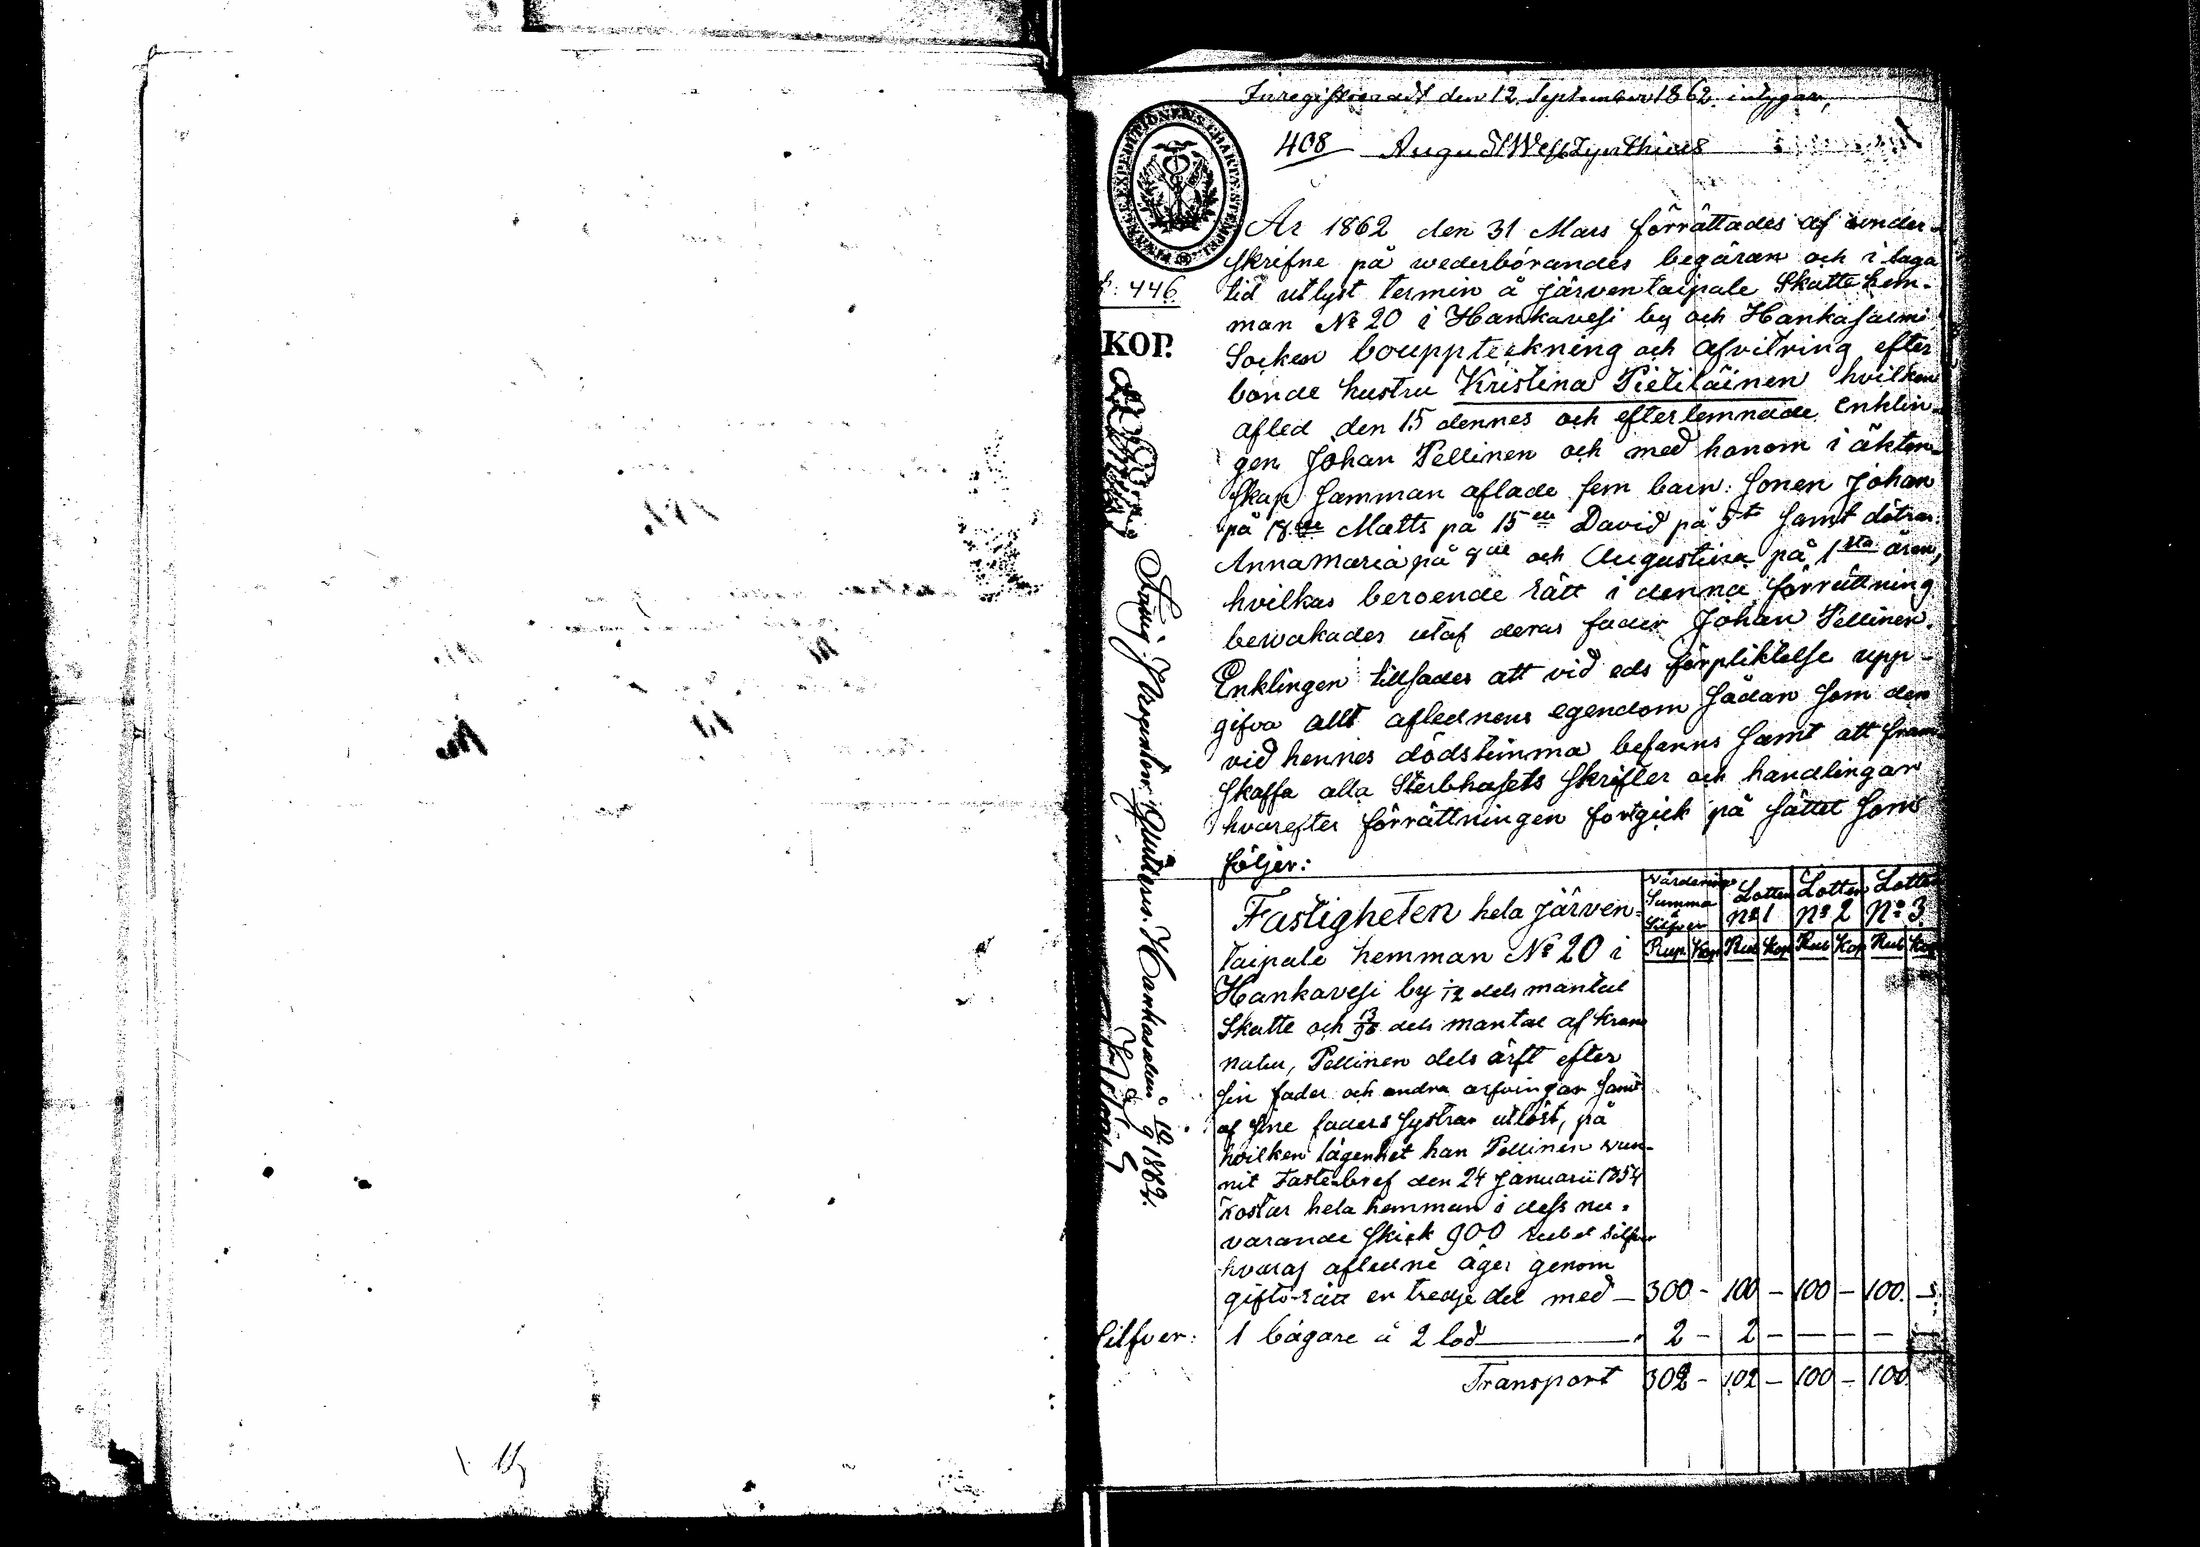 Inregistreradt den 12 September 1862. intygar,
408 August Westzynthius
FINSKA EXPEDITIONENS CHARTÆ STEMPEL
År 1862 den 31 Mars förrättades af under-
skrifne på wederbörandes begäran och i laga
446. tid utlyst termin å Järventaipale Skatte hem-
man No 20 i Hankavesi by och Hankasalmi
KOP.
Socken bouppteckning och afvitring efter
bonde hustru Kristina Pietiläinen hvilken
afled den 15 dennes och efterlemnade Enklin-
gen Johan Pellinen och med honom i äkten-
skap samman aflade fem barn: sonen Johan
på 18de Matts på 15de David på 5te samt dötrar:
Annamaria på 8de och Augustina på 1sta åren,
hvilkas beroende rätt i denna förrättning
bewakades utaf deras fader Johan Pellinen.
Enklingen tillsades att vid eds förpliktelse upp-
gifva allt aflednens egendom sådan som den
vid hennes dödstimma befanns samt att fram
skaffa alla Sterbhusets skrifter och handlingar
hvarefter förrättningen fortgick på sättet som
följer:
Hankasalmi 10/9 1862.
Fastigheten hela Järven-
Värderings Summa Silfver Lotten No 1 Lotten No 2 Lotten No 3
taipale hemman No 20 i
Rup. Kop Rub Kop Rub Kop Rub Kop
Hankavesi by 12 dels mantal
Skatte och 13/96 dels mantal af krono
natur, Pellinen dels ärft efter
sin fader och andra arfvingar samt
af sine faders systrar utlöst, på
hvilken lägenhet han Pellinen wun-
nit Fastebref den 24 Januarii 1854
kostar hela hemman i dess nu-
varande skick 900 rubel silfver
hvaraf afledne äger genom
gifto-rätt en tredje del med — 300 - 100 - 100 - 100 -
Silfver: 1 bägare à 2 lod — 2 - 2 - — - — -
Transport 302 - 102 - 100 - 100